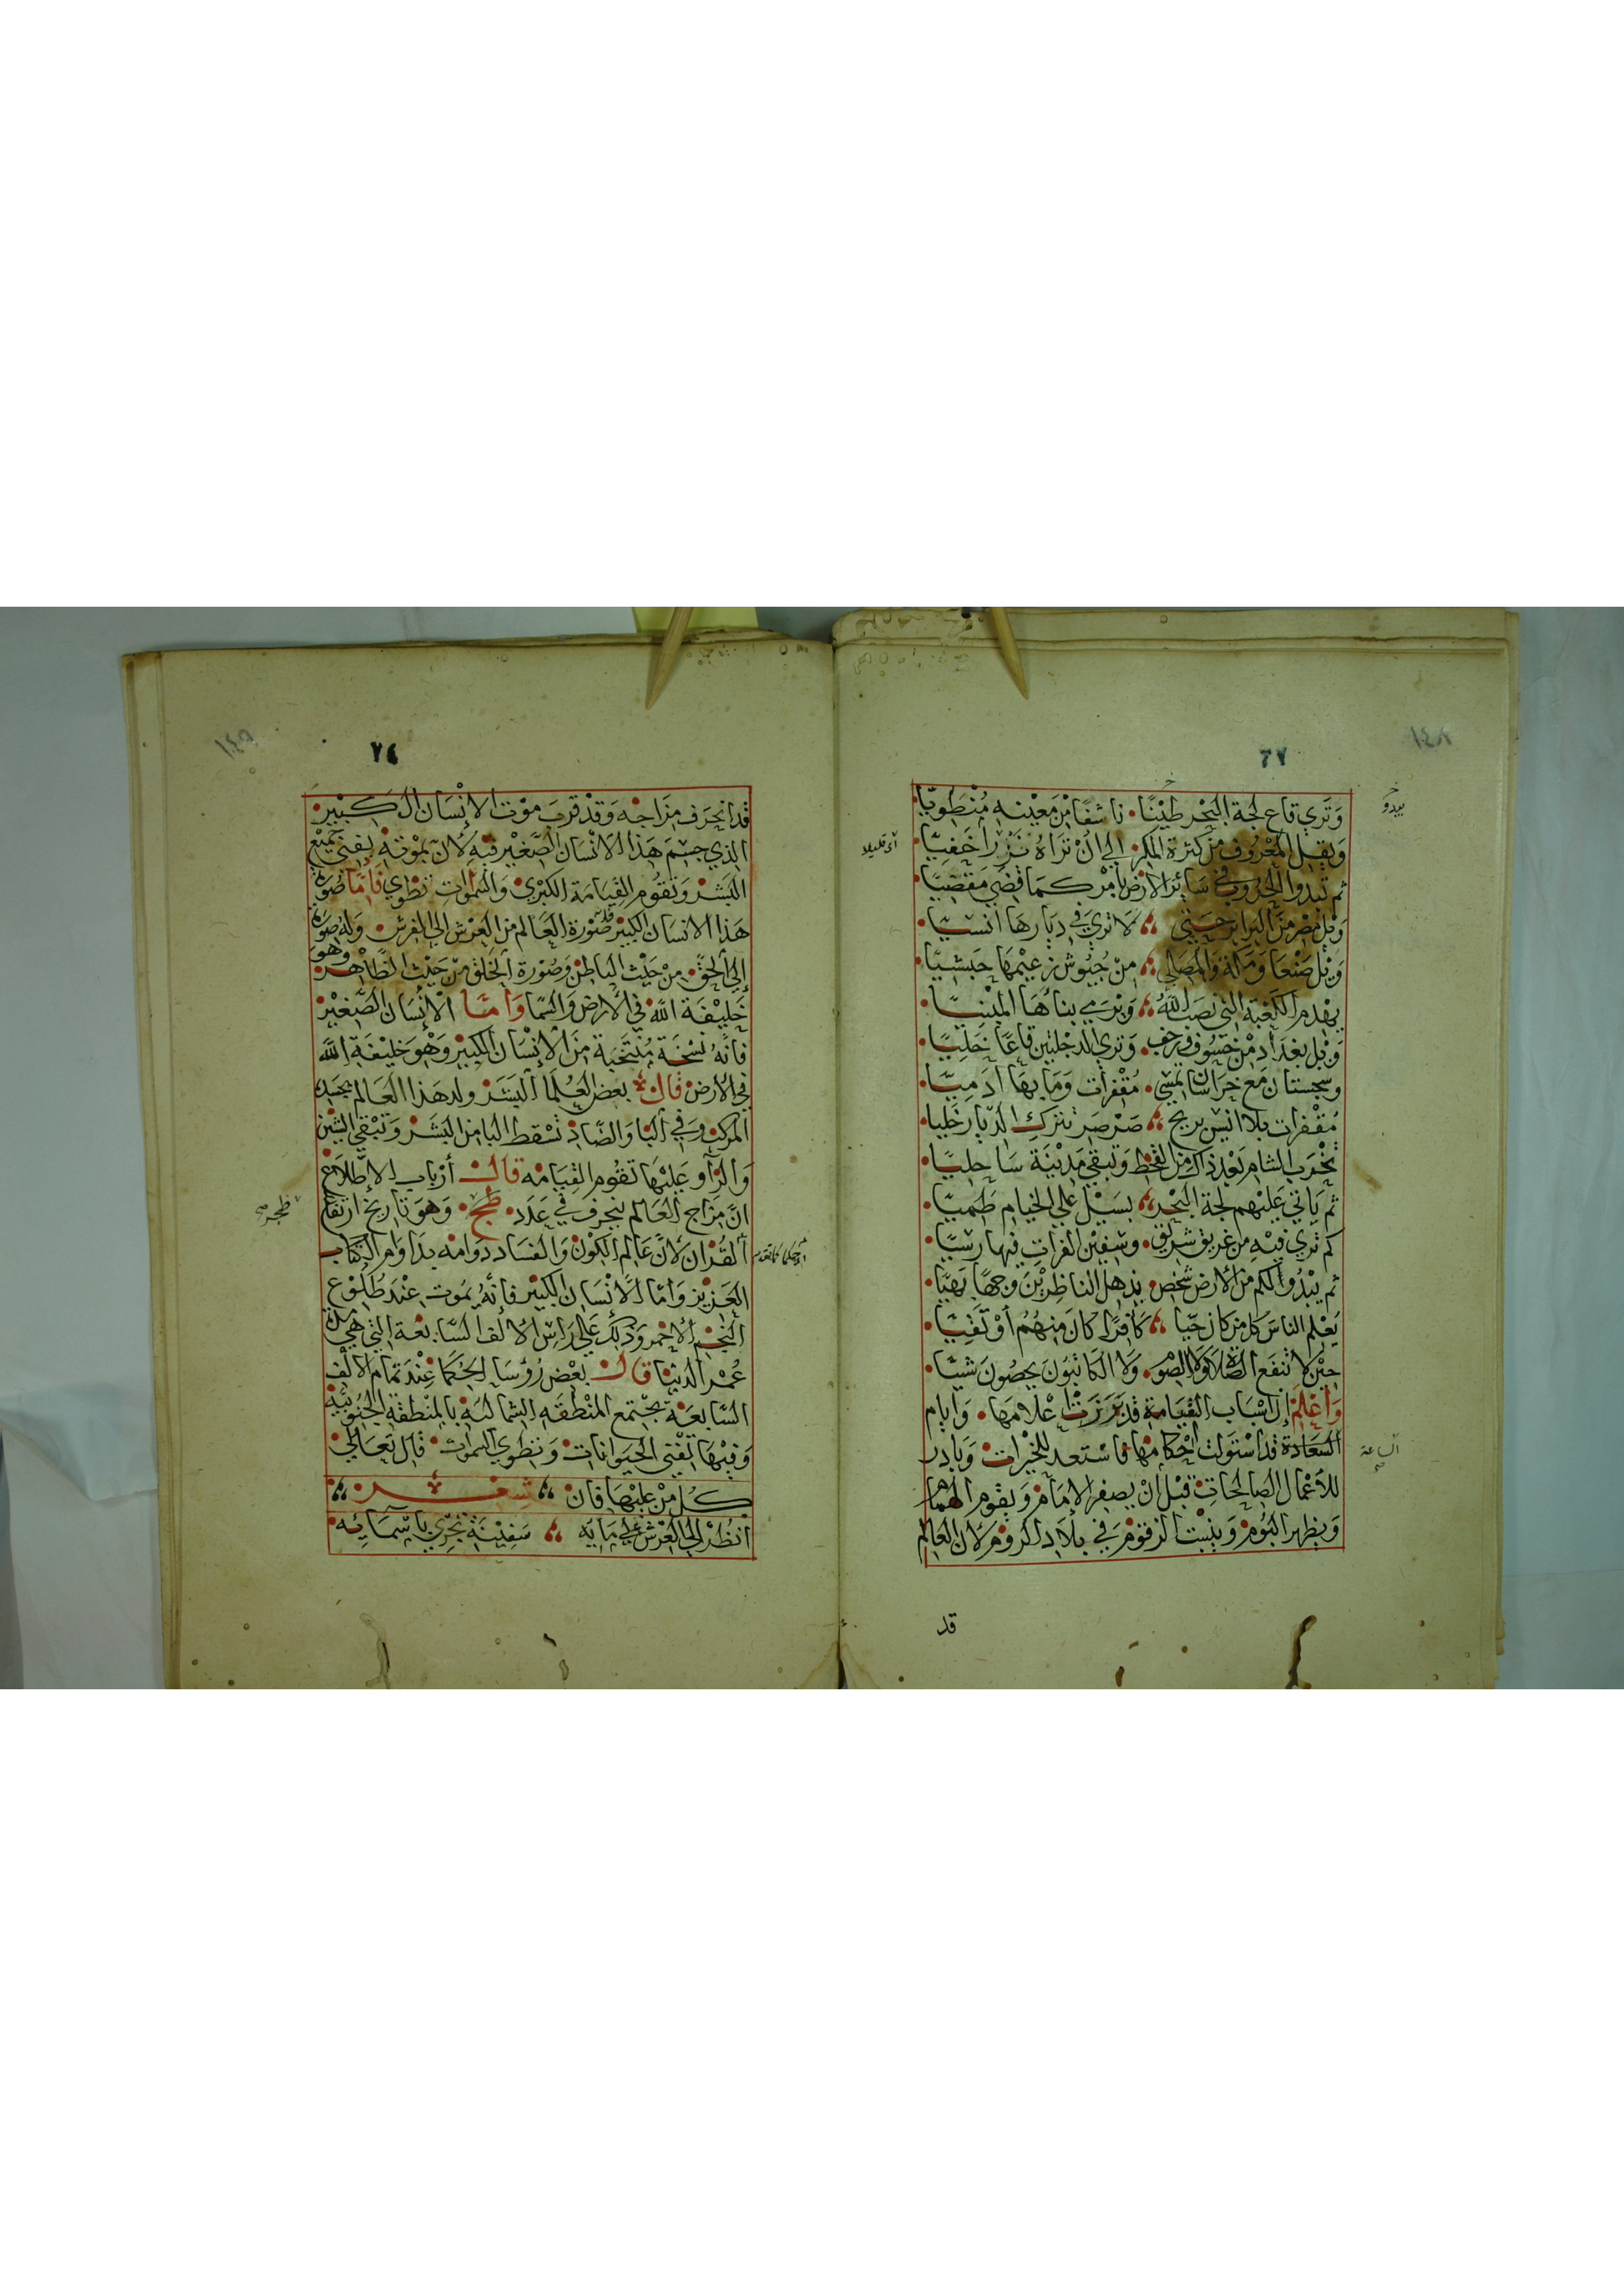 ١٤٨
٦٧
وَتَري قاع لجة البَحْر طِيْنًا ۰ ناشفًا مْن مَعِيْنِه مُنْطَوِيّا ۰
يبدو
وَيَقِلّ المَعْرُوف مِنْ كثرة المكر ۰ الي انْ تَرَاهُ نَزْرًا خَفِيًّا ۰
أى قليلا
ثم تبدوا الحُرُوب في سَايْر الارضْ بأمْرٍ كَمَا قضي مَقْضِيًّا ۰
وَيْل مْصر مِنَ البَرابر حِيتي ،، لَا تري في دِيَارهَا انْسِيًّا ۰
وَيْل صَنْعَا وَمَكة وَالمصَلي ،، منْ جُيُوش زعيْمهَا حَبَشيًّا ۰
يهْدم الكَعْبَة التي نصَبَ اللهُ ،، وَيَرمي بناءُهَا المَبْنيًّا ۰
وَيْل بغدَاد مْن خسُوف وَرجف ۰ وَتري الدجْلتين قاعًا خَليًّا ۰
وسجستان مَع خرَاسَان تمْسي ۰ مُقْفرات وَمَا بهَا آدَمِيًّا ۰
مُقْفرات بلا انيْس بريح ،، صَرْصَر تترك الدّيار خَليا ۰
تخْرَب الشام بَعْد ذاك مْن القحْط وَتبقي مَدْيْنَة سَاحِليًّا ۰
ثم يَاتي عَليْهم لجة البَحْر ،، بسَيْل علي الخيام طَميًّا ۰
كم تري فيْه من غريق شريق ۰ وسَفِيْن الفرات فيها رسيًّا ۰
ثم يبْدُوا لكم منَ الأرض شخص ۰ يذهل الناظرِيْنَ وجهًا بَهيًّا ۰
يَعْلم الناسَ كل من كان حَيّا ،، كَافرًا كان مِنهُمُ أوْ تَقِيًّا ۰
حِيْن لا تنفَع الصَّلاة وَلا الصّوم ۰ وَلا الكَاتبُونَ يحصُونَ شيئًا ۰
وَأعْلَم ان اسْبَاب القيَامَة قد بَرَزَتْ اعْلامهَا ۰ وَايام
السَعَادة قد استَولت احْكامهَا فاسْتعد للخيْرات ۰ وَبَادر
الساعة
للأعْمَال الصَالحَات ۰ قبْل انْ يصفر الامَامْ وَيقوم الهمَام
وَيظهر البُومْ وَينبْت الزقومْ في بلاد الرومْ لان العَالم
قد
١٤٩
٢٤
قد انحَرَف مزَاجه وَقدْ قربَ موْت الإنْسَان الكَبيْر ۰
الذي جسْم هَذا الانْسَان الصَّغيْر فيْه لان بمْوته يفني جميْع
البَشَر وَتقُوم القيَامَة الكبْري ۰ وَالسَّموَات تطوي فَأمَّا صُورَة
هَذا الانسَان الكبيْر فله صُوْرة العَالم من العَرْش الي الفرش ۰ وَله صُورَة
إلي الحَقّ ۰ منْ حَيْث البَاطنْ وَصُوْرة الخلق منْ حَيْث الظَّاهْر ۰ وهو
خَليْفَة الله في الأرض وَالسَّمَا وَأمَّا الإنْسَان الصَّغيْر
فانهُ نسْخَة مُنتَخَبَة منَ الإنْسَان الكبيْر وَهْوَ خَليْفَة الله
في الأرض قال بعض العُلمَا البَشَر ولد هَذا العَالم بحَيْث
المركب وَفي البَا وَالضَّادْ تسْقط البَا منَ البَشَر وَتبْقي الشِّيْن
وَالرَّا وَعَليْهَا تقُوم القيَامَه قال أرْبَاب الاطّلَاع
انَّ مزَاج العَالم ينحرف في عَدَد ۰ طحج ۰ وَهوَ تاريخ ارتفَاع
القُرْان لانَّ عَالم الكَوْن وَالفسَاد دوَامه بدَوَام الكِتَاب
العَزيْز وَأمّا الإنْسَان الكبيْر فأنهُ يمُوت عنْد طُلوْع
النجْم الاحْمر وَذلك عَلي رَاس الالف السّابعَة التي هي
عُمْر الدنيَا قال بعْض رُؤسَا الحُكمَا عنْدَ تمَام الالْف
السَّابعَة تجْتمع المنْطقَه الشماليْة بالمنْطقة الجَنُوبيّة
وَفيْهَا تفْني الحَيوَانَات ۰ وَتطوي السَّموَات ۰ قال تعَالي ۰
كُل مَنْ عَليْهَا فان ،، شعْر ،،
انظُرْ الي العَرْش عَلي مَايْه ،، سَفِيْنَة تجْري باسْمَائه ۰